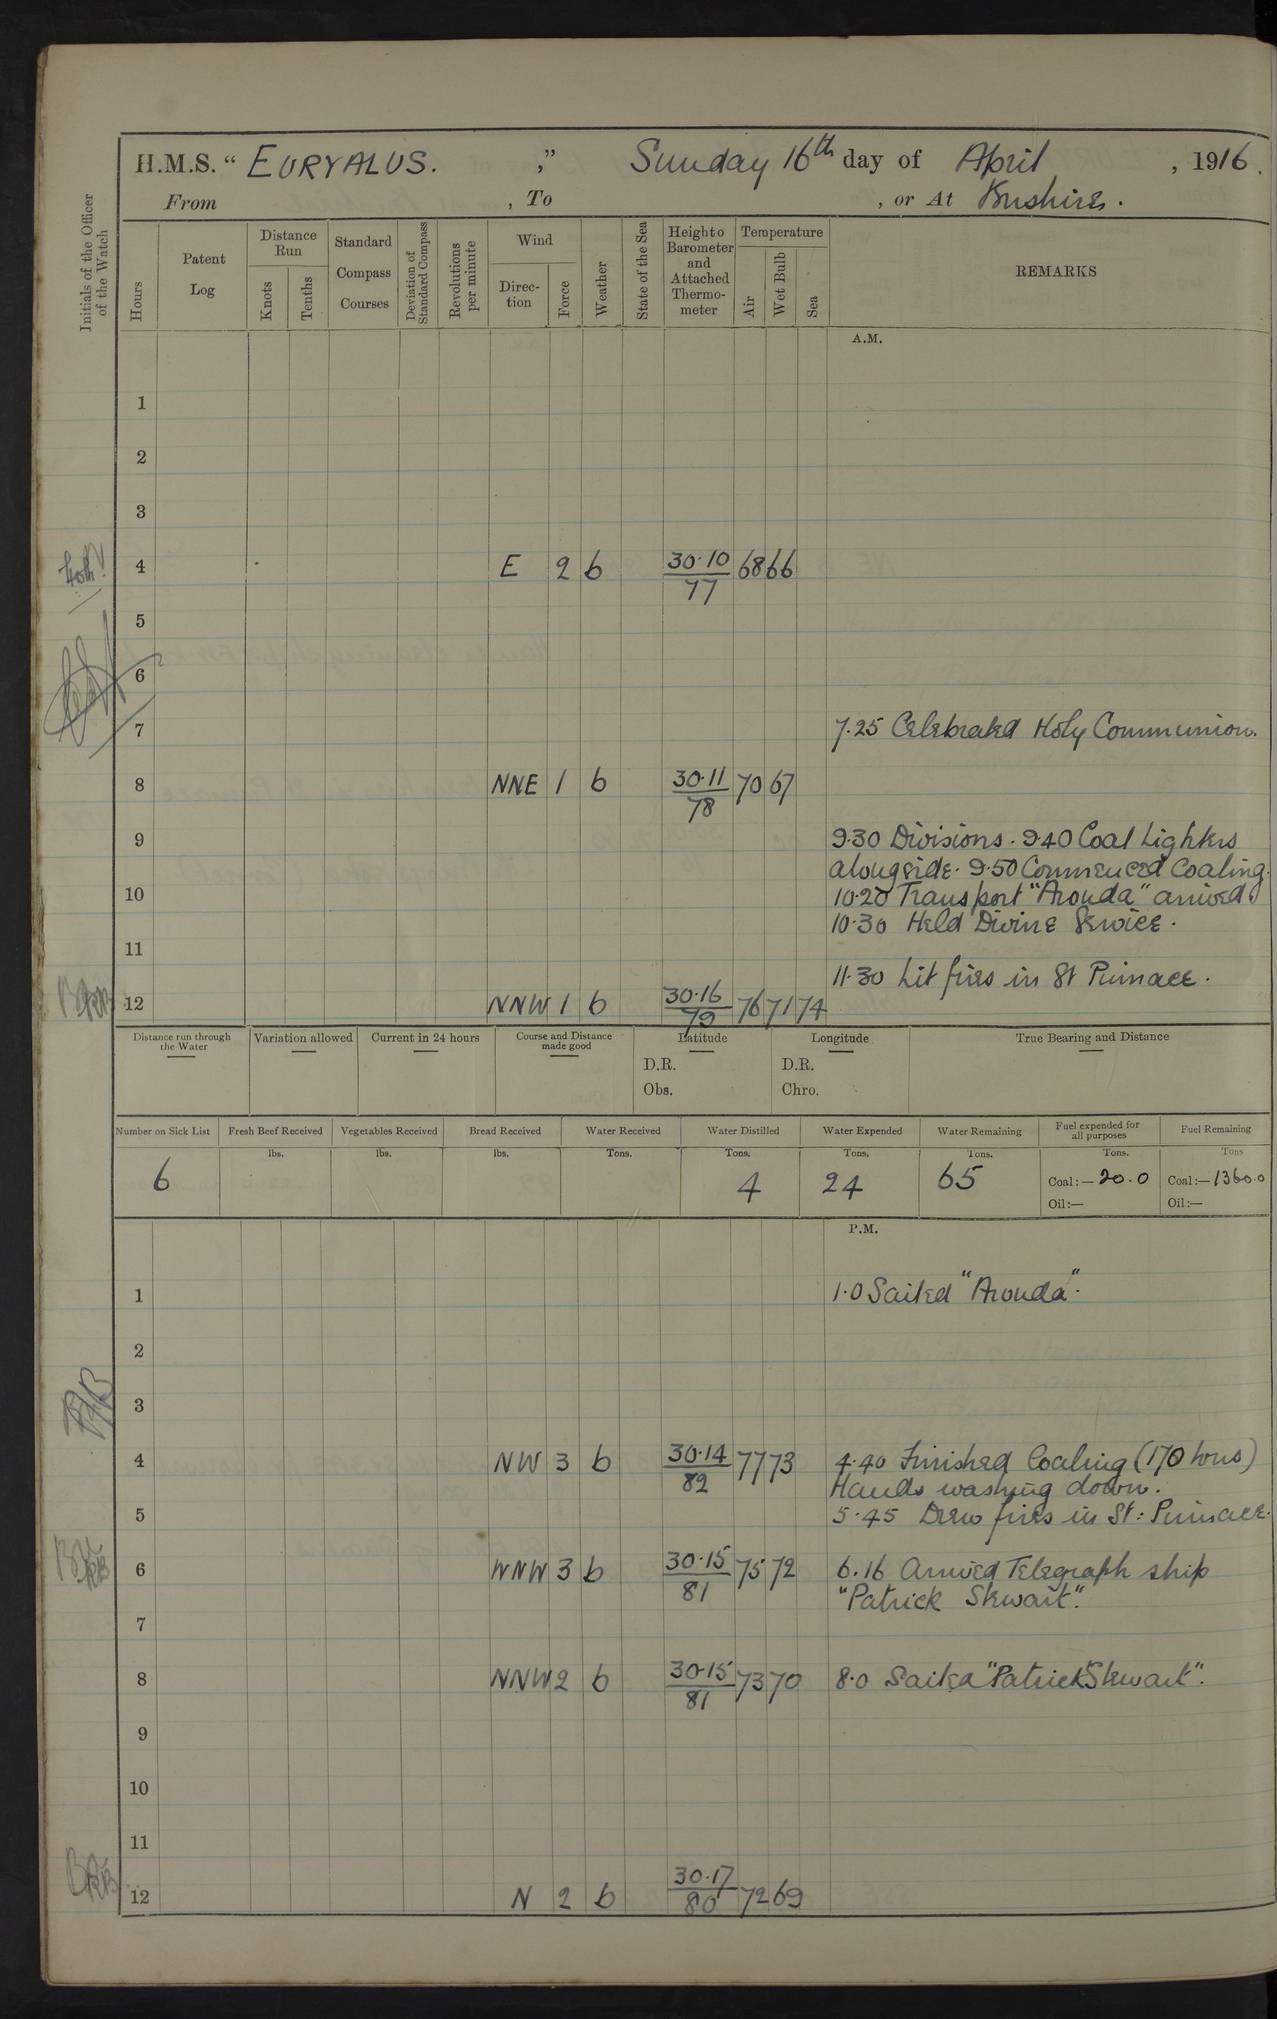 H.M.S. " EURYALUS. ," Sunday 16th day of April , 1916.
From , To , or At Bushire.
Initials of the Officer of the Watch
Hours
Patent Log
Distance Run
Knots
Tenths
Standard Compass Courses
Deviation of Standard Compass
Revolutions per minute
Wind
Direction
Force
Weather
State of the Sea
Height o Barometer and Attached Thermometer
Temperature
Air
Wet Bulb
Sea
REMARKS
A.M.
1
2
3
4 E 2 b 30.10 / 77 68 66
5
6
7 7.25 Celebrated Holy Communion.
8 NNE 1 b 30.11 / 78 70 67
9 9.30 Divisions. 9.40 Coal Lighters
alongside. 9.50 Commenced Coaling.
10 10.20 Transport "Aronda" arrived.
10.30 Held Divine Service.
11
11.30 Lit fires in St Pinnace.
12 NNW 1 b 30.16 / 79 76 71 74
Distance run through the Water
Variation allowed
Current in 24 hours
Course and Distance made good
Latitude
D.R.
Obs.
Longitude
D.R.
Chro.
True Bearing and Distance
Number on Sick List Fresh Beef Received Vegetables Received Bread Received Water Received Water Distilled Water Expended Water Remaining Fuel expended for all purposes Fuel Remaining
lbs. lbs. lbs. Tons. Tons. Tons. Tons. Tons. Tons
6 4 24 65 Coal:— 20.0 Coal:— 1360.0
Oil:— Oil:—
P.M.
1 1.0 Sailed "Aronda".
2
3
4 NW 3 b 30.14 / 82 77 73 4.40 Finished Coaling (170 tons)
Hands washing down.
5 5.45 Drew fires in St: Pinnace.
6 WNW 3 b 30.15 / 81 75 72 6.16 Arrived Telegraph ship
"Patrick Stewart".
7
8 NNW 2 b 30.15 / 81 73 70 8.0 Sailed "Patrick Stewart".
9
10
11
12 N 2 b 30.17 / 80 72 69